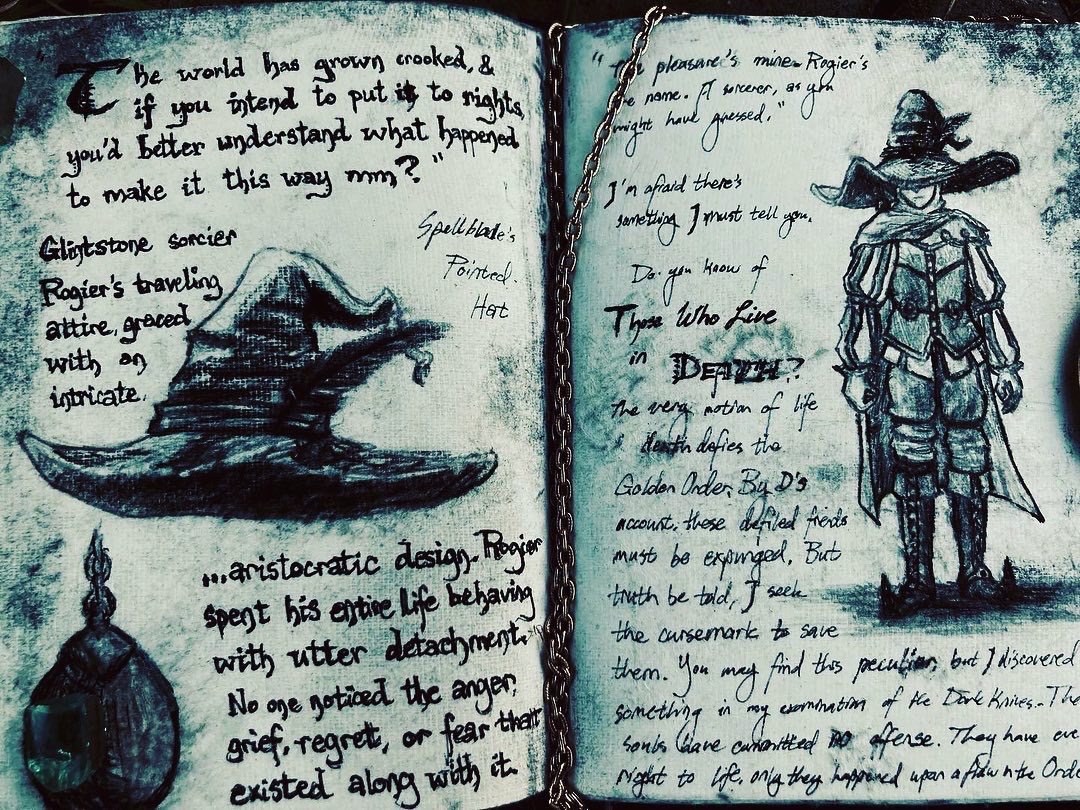 "The world has grown crooked, &
if you intend to put it to rights,
you'd better understand what happened
to make it this way mm,?"
Spellblade's
Pointed
Hat
Glintstone sorcier
Rogier's traveling
attire, graced
with an
intricate.
...aristocratic design. Rogier
spent his entire life behaving
with utter detachment.
No one noticed the anger,
grief, regret, or fear that
existed along with it.
"The pleasure's mine. Rogier's
the name. A sorcerer, as you
might have guessed."
I'm afraid there's
something I must tell you.
Do you know of
Those Who Live
in DEATH?
The very notion of life
& death defies the
Golden Order. By D's
account, these defiled
must be expunged. But
truth be told, I seek
the cursemark to save
them. You may find this peculiar, but I discovered
something in my examination of the Dark Knives. The
souls have committed no offense. They have eve
right to life, only they happened upon a flaw in the Orde